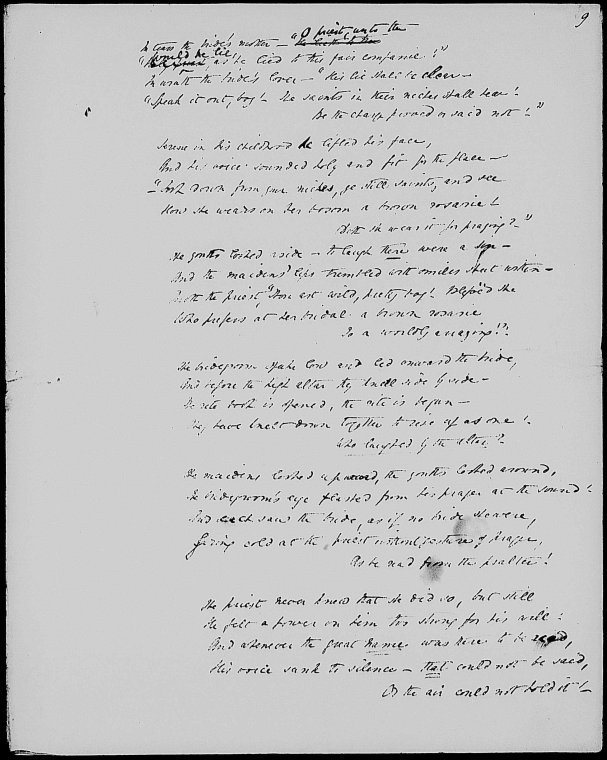 9
In wrath the bride's mother – "O priest, unto thee
"Would he lie, as he lied to this fair companie!"
In wrath the bride's lover – "His lie shall be clear –
"Speak it out, boy! – the saints in their niches shall hear! –
Be the charge proved or said not! – "
Serene in his childhood he lifted his face,
And his voice sounded holy and fit for the place –
– "Look down from your niches, ye still saints, and see
How she wears on her bosom a brown rosarie! –
Doth she wear it for praying? – "
The youths looked aside – to laugh there were a sin –
And the maidens' lips trembled with smiles shut within –
Quoth the priest, "Thou art wild, pretty boy! Blessed she
Who prefers at her bridal a brown rosarie
To a worldly arraying!" –
The bridegroom spake low and led onward the bride,
And before the high altar they knelt side by side –
The rite book is opened, the rite is begun –
They have knelt down together to rise up as one! –
Who laughed by the altar? –
The maidens looked forward, the youths looked around,
The bridegroom's eye flashed from his prayer at the sound! –
And each saw the bride, as if no bride she were,
Gazing cold at the priest without gesture of prayer,
As he read from the psalter!
The priest never knew that she did so, but still
He felt a power on him too strong for his will:
And whenever the great name was there to be read,
His voice sank to silence – that could not be said,
Or the air could not hold it! –